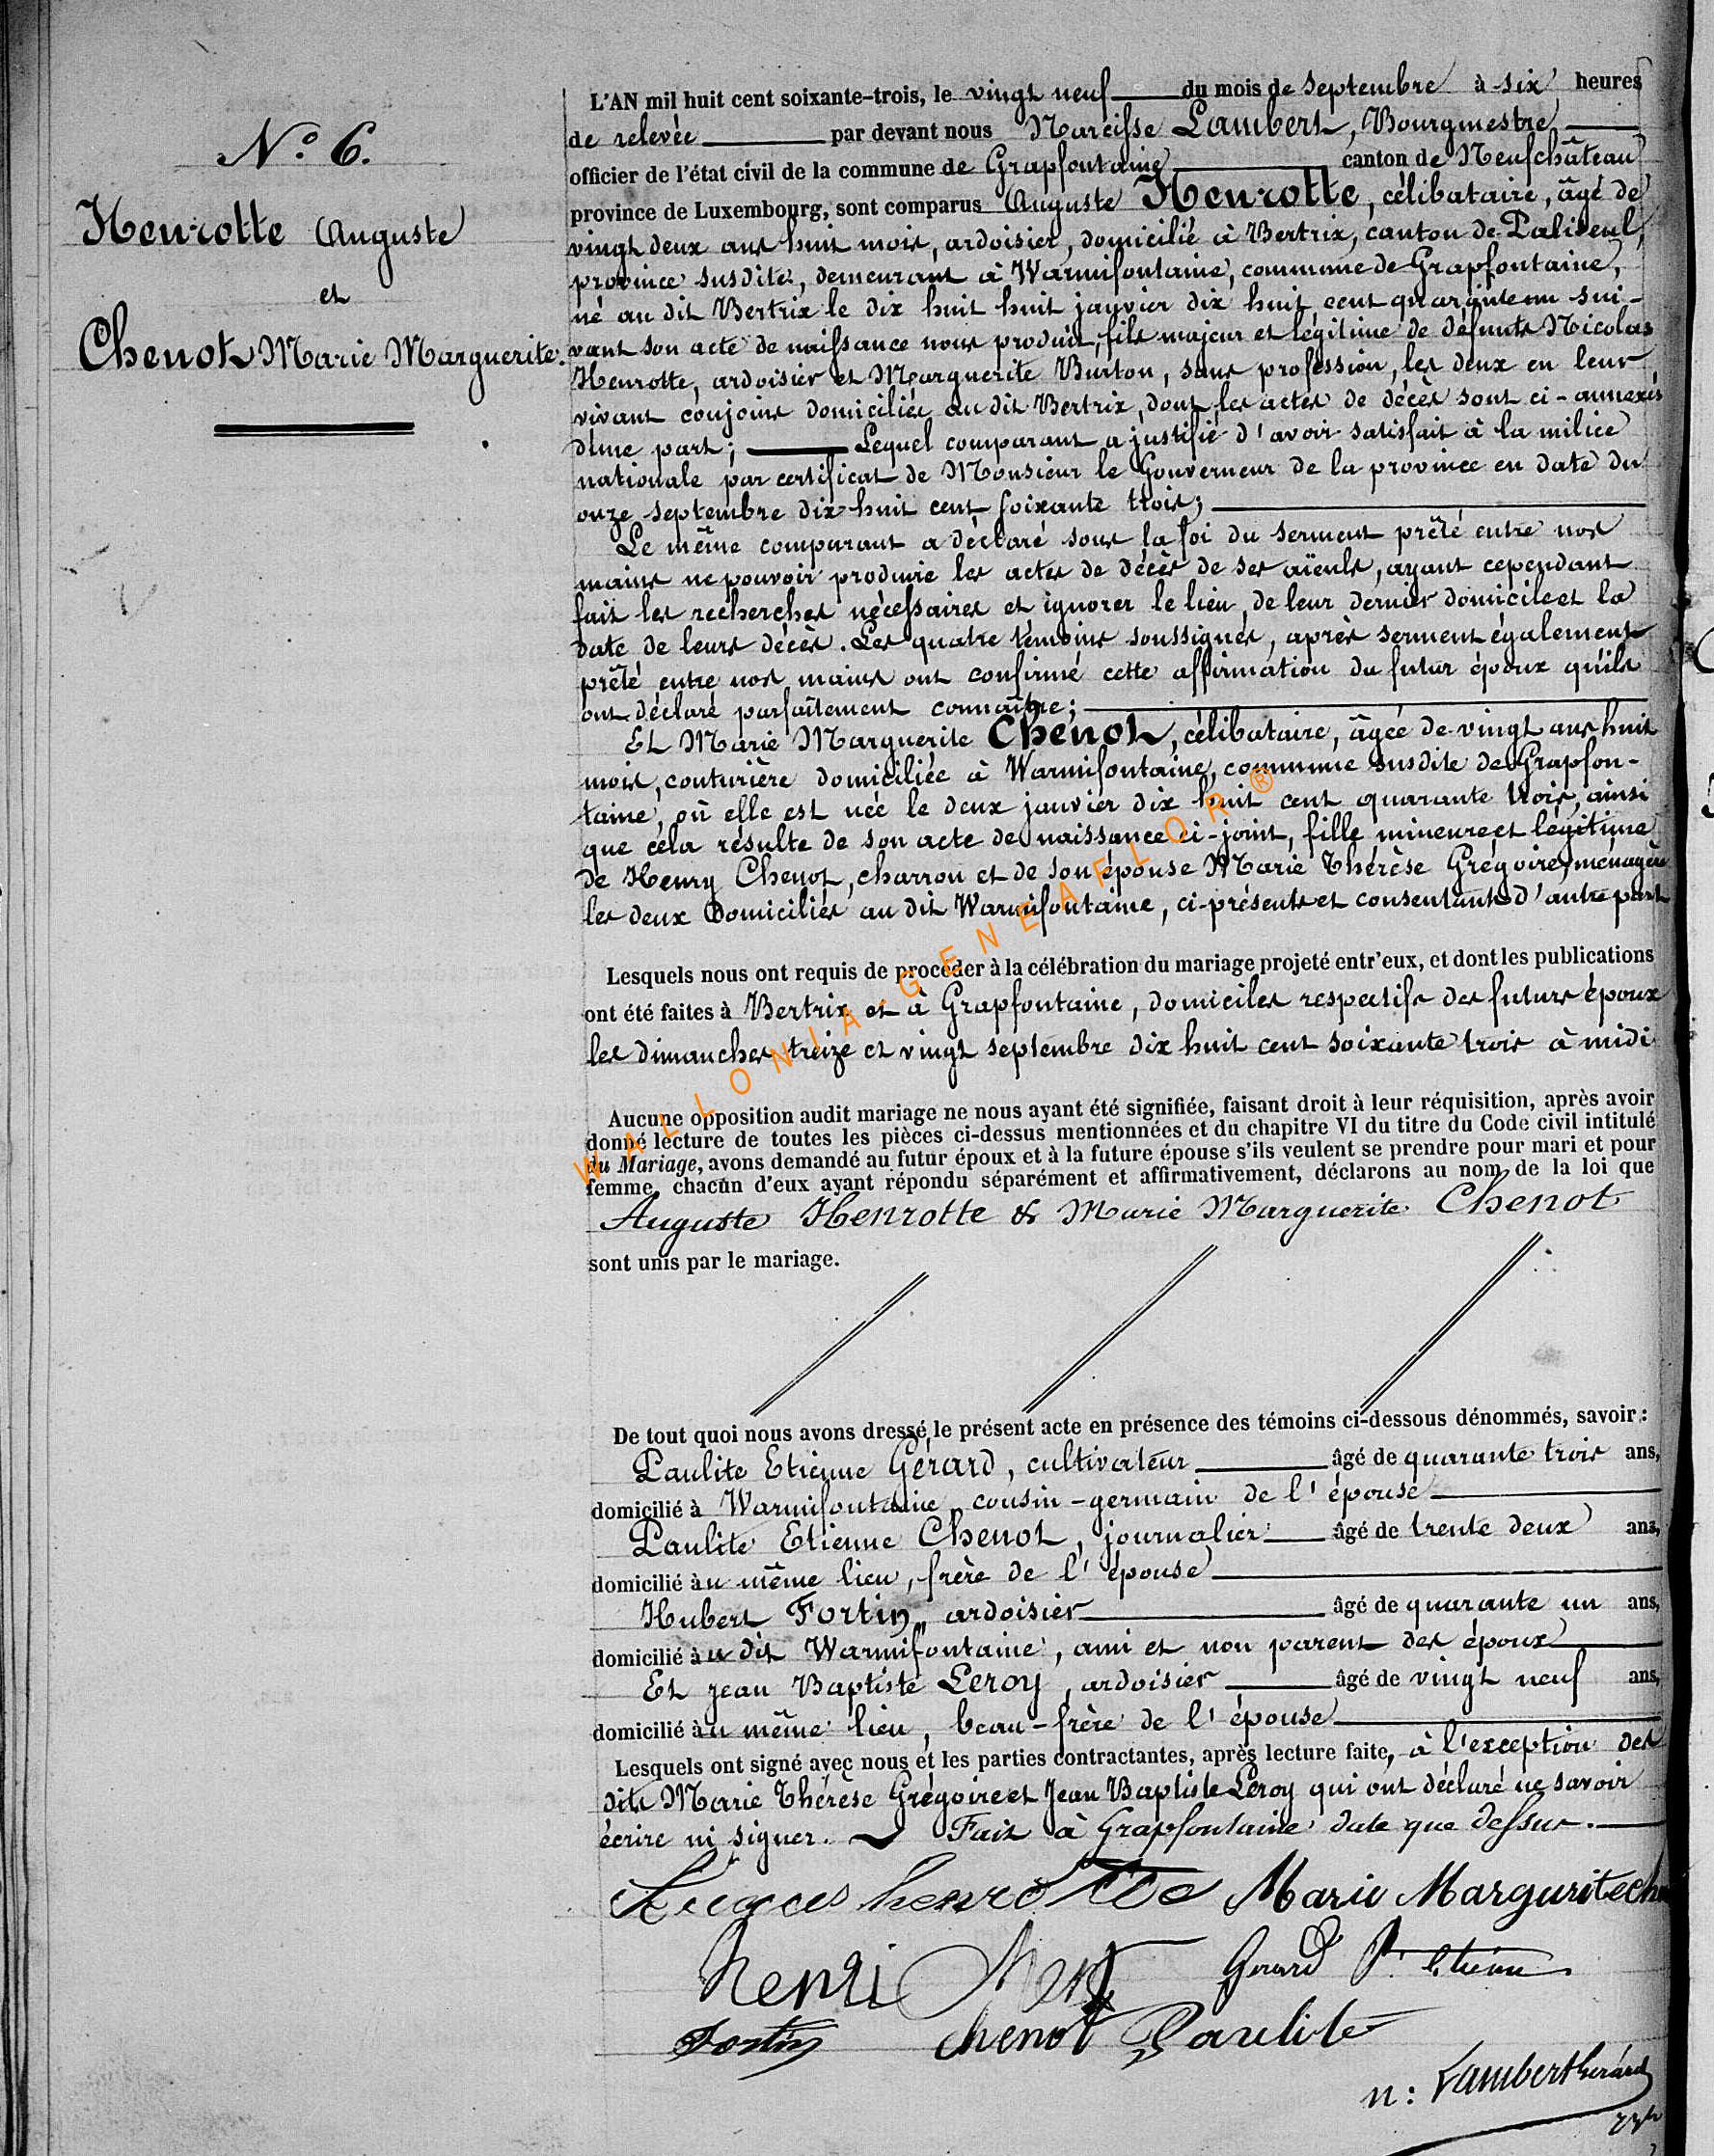 N.o 6.
Henrotte Auguste
et
Chenot Marie Marguerite.
L'AN mil huit cent soixante-trois, le vingt neuf du mois de septembre à six heures
de relevée par devant nous Narcisse Lambert, Bourgmestre
officier de l'état civil de la commune de Grapfontaine canton de Neufchâteau
province de Luxembourg, sont comparus Auguste Henrotte, célibataire, âgé de
vingt deux ans huit mois, ardoisier, domicilié à Bertrix, canton de Paliseul,
province susdite, demeurant à Warmifontaine, commune de Grapfontaine,
né au dit Bertrix le dix huit huit janvier dix huit cent quarante un sui-
vant son acte de naissance nous produit, fils majeur et légitime de défunts Nicolas
Henrotte, ardoisier et Marguerite Burton, sans profession, les deux en leur
vivant conjoins domiciliés au dit Bertrix, dont les actes de décès sont ci-annexés
d'une part; Lequel comparant a justifié d'avoir satisfait à la milice
nationale par certificat de Monsieur le Gouverneur de la province en date du
onze septembre dix huit cent soixante trois;
Le même comparant a déclaré sous la foi du serment prêté entre nos
mains ne pouvoir produire les actes de décès de ses aïeuls, ayant cependant
fait les recherches nécessaires et ignorer le lieu de leur dernier domicile et la
date de leurs décès. Les quatre témoins soussignés, après serment également
prêté entre nos mains ont confirmé cette affirmation du futur époux qu'ils
ont déclaré parfaitement connaître;
Et Marie Marguerite Chenot, célibataire, âgée de vingt ans huit
mois, couturière domiciliée à Warmifontaine, commune susdite de Grapfon-
taine, où elle est née le deux janvier dix huit cent quarante trois, ainsi
que cela résulte de son acte de naissance ci-joint, fille mineure et légitime
de Henry Chenot, charron et de son épouse Marie Thérèse Grégoire, ménagère
les deux domiciliés au dit Warmifontaine, ci-présents et consentants d'autre part
Lesquels nous ont requis de procéder à la célébration du mariage projeté entr'eux, et dont les publications
ont été faites à Bertrix et à Grapfontaine, domiciles respectifs des futurs époux
les dimanches treize et vingt septembre dix huit cent soixante trois à midi
Aucune opposition audit mariage ne nous ayant été signifiée, faisant droit à leur réquisition, après avoir
donné lecture de toutes les pièces ci-dessus mentionnées et du chapitre VI du titre du Code civil intitulé
du Mariage, avons demandé au futur époux et à la future épouse s'ils veulent se prendre pour mari et pour
femme, chacun d'eux ayant répondu séparément et affirmativement, déclarons au nom de la loi que
Auguste Henrotte & Marie Marguerite Chenot
sont unis par le mariage.
De tout quoi nous avons dressé le présent acte en présence des témoins ci-dessous dénommés, savoir :
Paulite Etienne Gérard, cultivateur âgé de quarante trois ans,
domicilié à Warmifontaine cousin-germain de l'épouse
Paulite Etienne Chenot, journalier âgé de trente deux ans,
domicilié au même lieu, frère de l'épouse
Hubert Fortin, ardoisier âgé de quarante un ans,
domicilié au dit Warmifontaine, ami et non parent des époux
Et Jean Baptiste Leroy, ardoisier âgé de vingt neuf ans,
domicilié au même lieu, beau-frère de l'épouse
Lesquels ont signé avec nous et les parties contractantes, après lecture faite, à l'exception des
dits Marie Thérèse Grégoire et Jean Baptiste Leroy qui ont déclaré ne savoir
écrire ni signer. Fait à Grapfontaine date que dessus.
henrotte Marie Margurite
henri Gerard P. Etienne
Fortin chenot Paulite
n: Lambert Gérard
WALLONIA-GENEAFLOR®